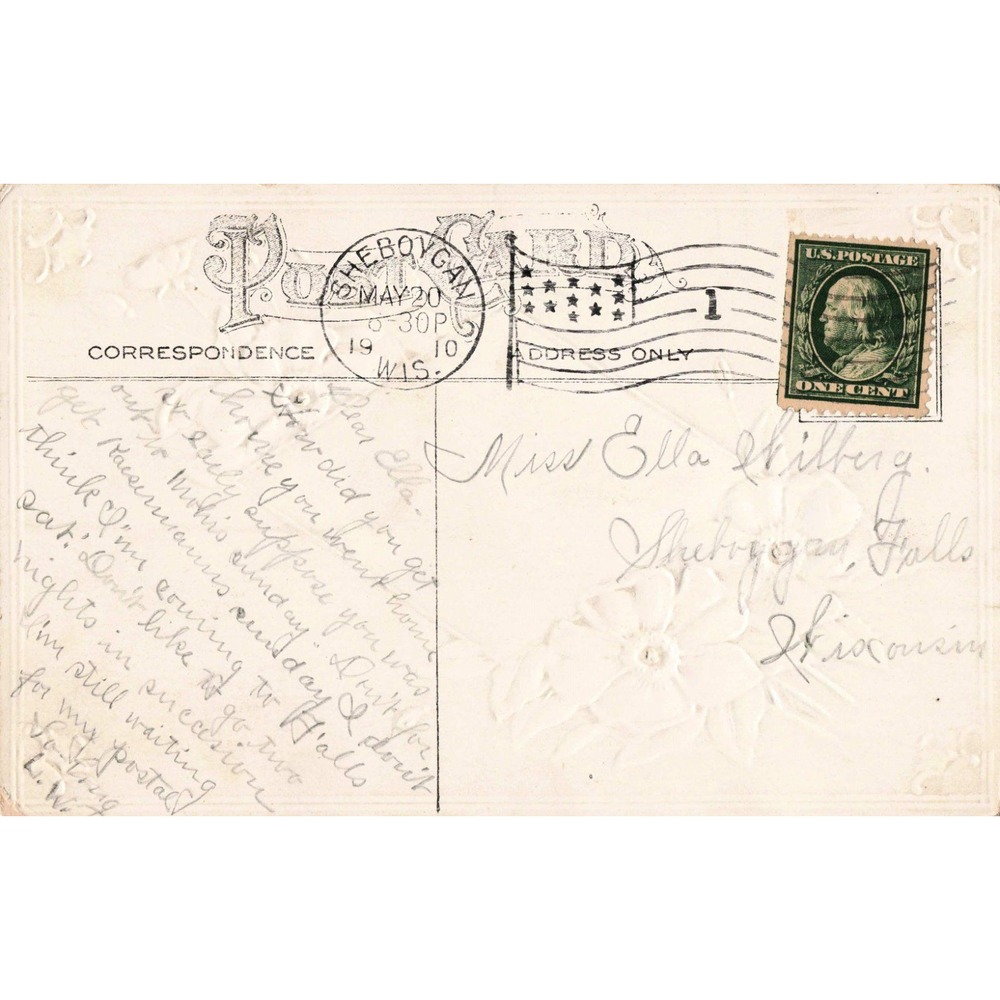 POST CARD
SHEBOYGAN
MAY 20
6-30P
19 10
WIS.
1
U.S. POSTAGE
ONE CENT
CORRESPONDENCE
ADDRESS ONLY
Dear Ella-
How did you get
home you went home
so early suppose you was
out to sunday. Don't you
get sunday I don't
think I'm coming to Falls
sat. Don't like to go two
nights in succession
I'm still waiting
for my postal
So long
L.W.
Miss Ella Wilberg.
Sheboygan Falls
Wisconsin